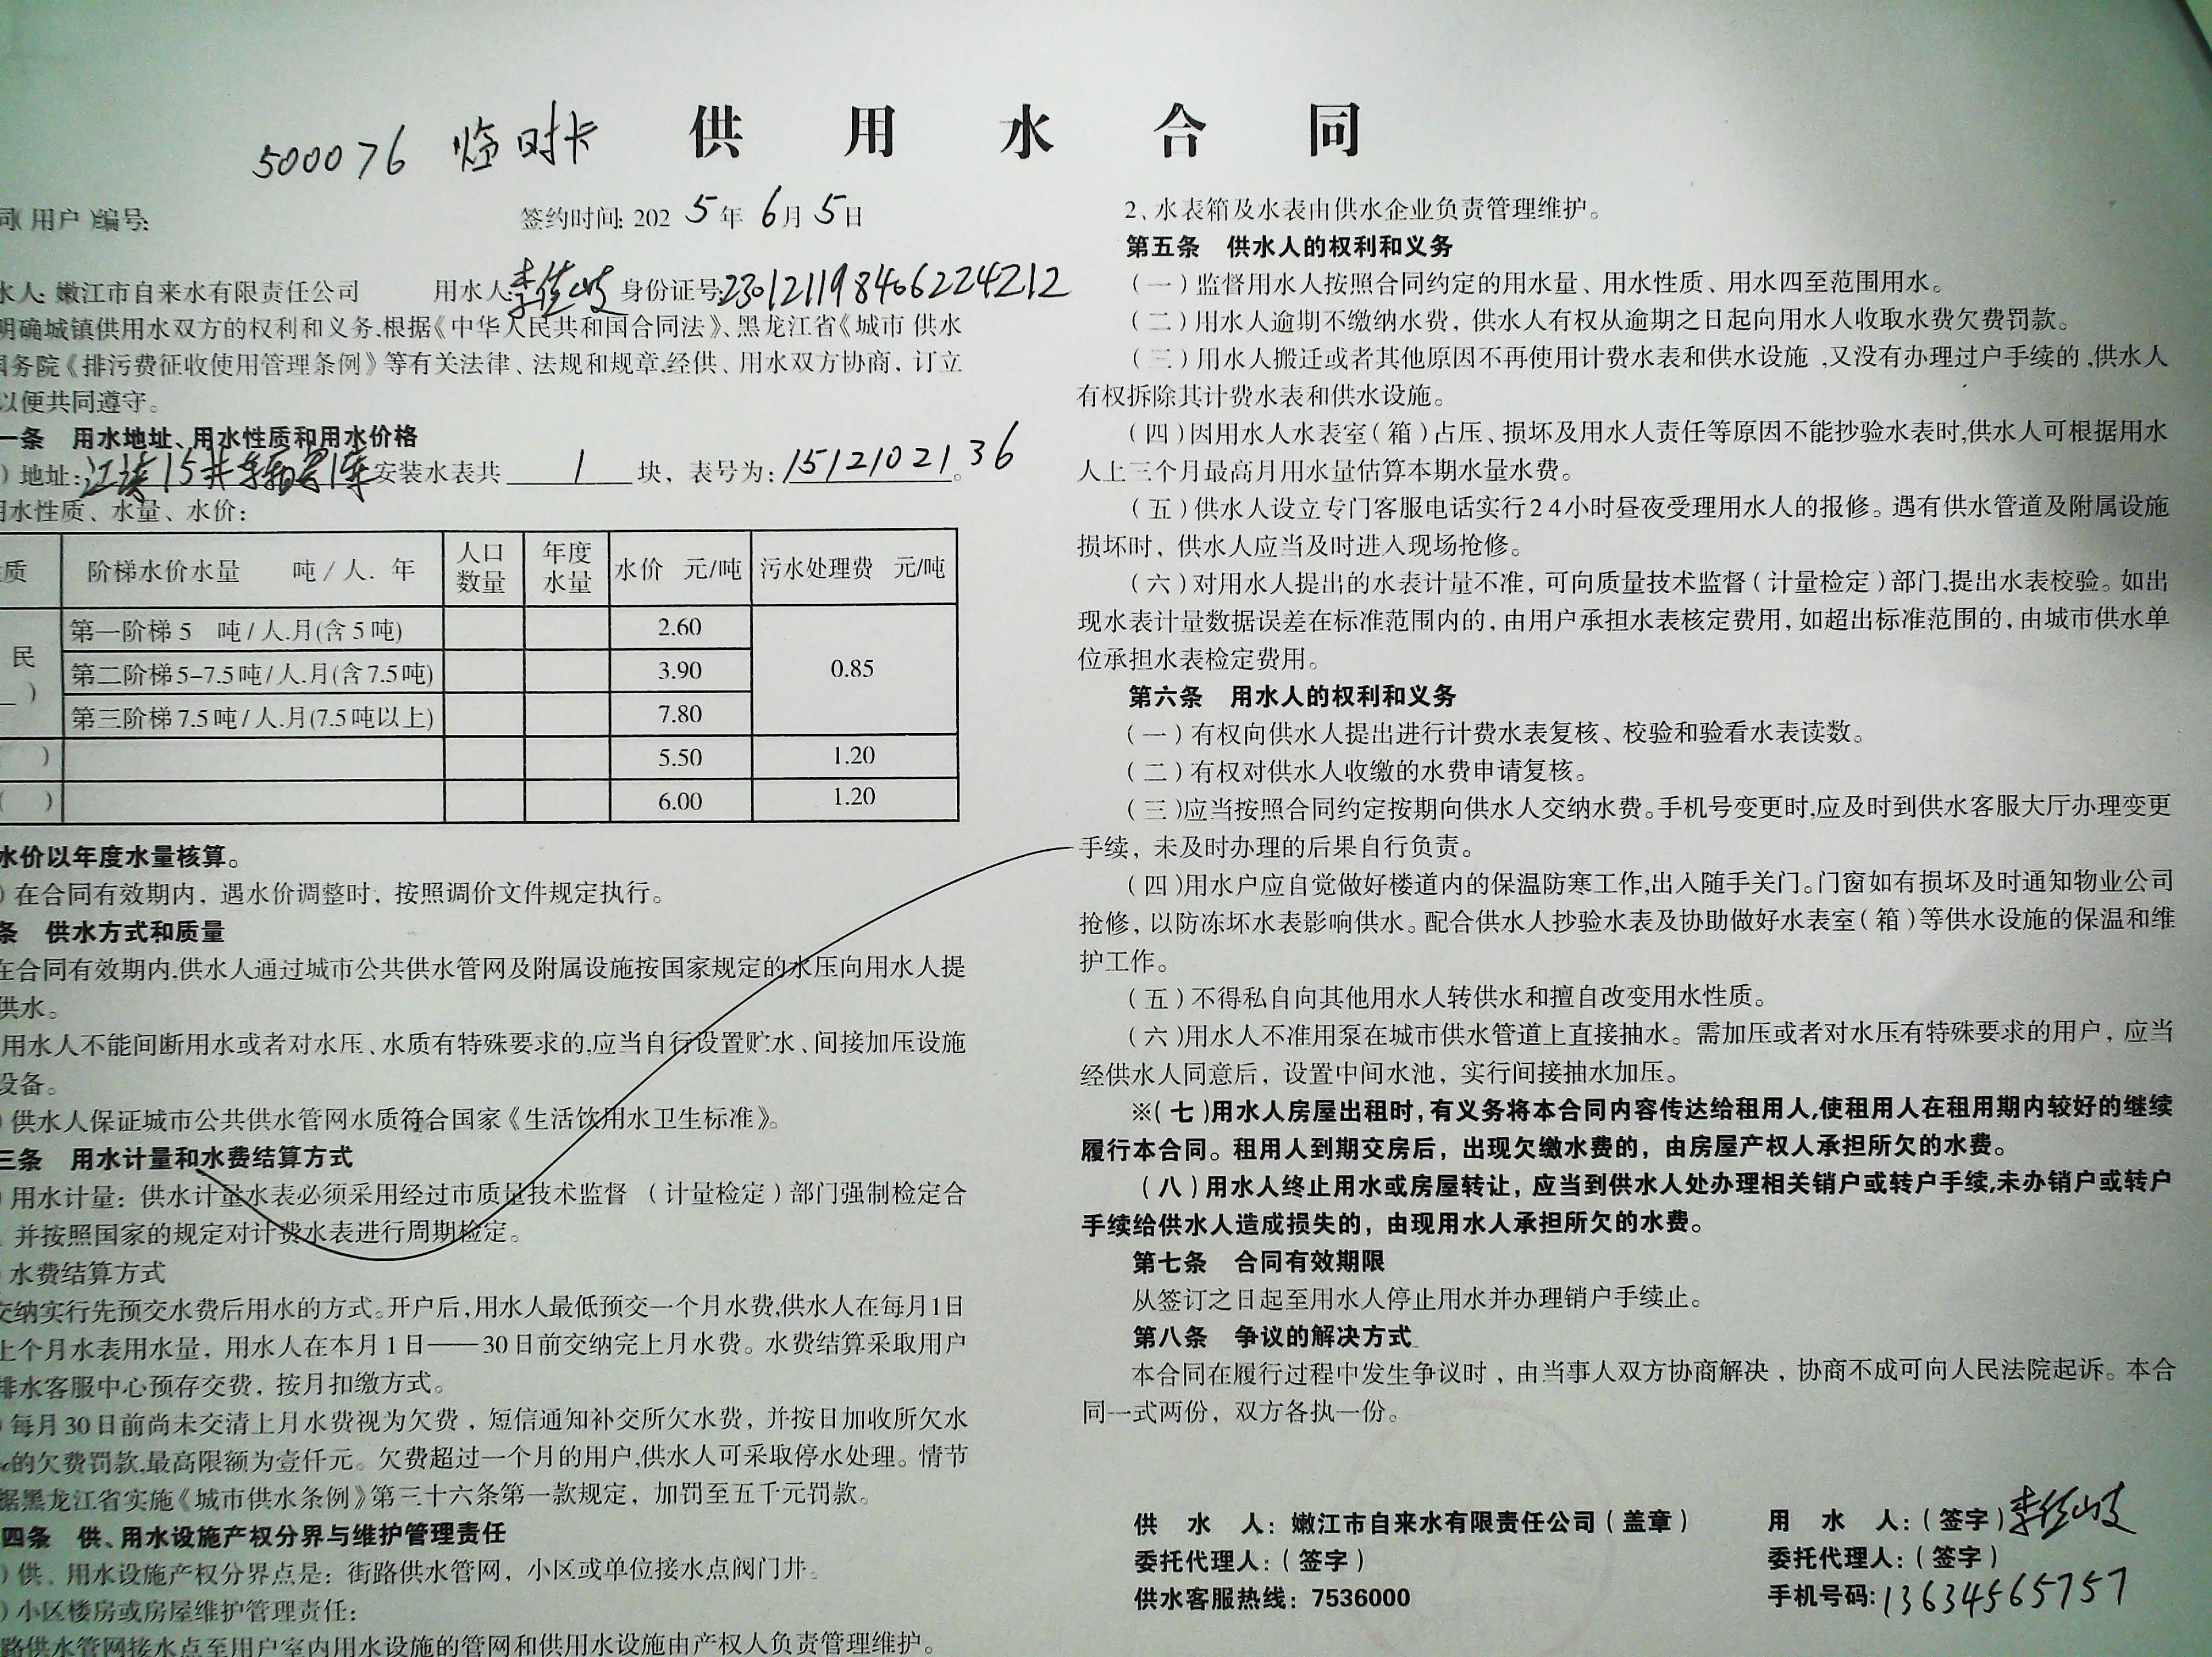 500076 临时卡 供用水合同
同(用户)编号:
签约时间: 2025年6月5日
水人: 嫩江市自来水有限责任公司 用水人: 李佳岐 身份证号: 230121198406224212
明确城镇供用水双方的权利和义务,根据《中华人民共和国合同法》、黑龙江省《城市 供水
国务院《排污费征收使用管理条例》等有关法律、法规和规章,经供、用水双方协商，订立
以便共同遵守。
一条 用水地址、用水性质和用水价格
)地址: 15 安装水表共 1 块，表号为: 1512102136。
用水性质、水量、水价:
质 阶梯水价水量 吨/人.年 人口数量 年度水量 水价 元/吨 污水处理费 元/吨
民 第一阶梯5 吨/人.月(含5吨) 2.60 0.85
第二阶梯5-7.5吨/人.月(含7.5吨) 3.90
) 第三阶梯7.5吨/人.月(7.5吨以上) 7.80
) 5.50 1.20
( ) 6.00 1.20
水价以年度水量核算。
)在合同有效期内，遇水价调整时，按照调价文件规定执行。
条 供水方式和质量
在合同有效期内,供水人通过城市公共供水管网及附属设施按国家规定的水压向用水人提
供水。
用水人不能间断用水或者对水压、水质有特殊要求的,应当自行设置贮水、间接加压设施
设备。
)供水人保证城市公共供水管网水质符合国家《生活饮用水卫生标准》。
三条 用水计量和水费结算方式
)用水计量：供水计量水表必须采用经过市质量技术监督 (计量检定)部门强制检定合
，并按照国家的规定对计费水表进行周期检定。
)水费结算方式
交纳实行先预交水费后用水的方式。开户后,用水人最低预交一个月水费,供水人在每月1日
上个月水表用水量，用水人在本月1日——30日前交纳完上月水费。水费结算采取用户
排水客服中心预存交费，按月扣缴方式。
)每月30日前尚未交清上月水费视为欠费，短信通知补交所欠水费，并按日加收所欠水
的欠费罚款,最高限额为壹仟元。欠费超过一个月的用户,供水人可采取停水处理。情节
据黑龙江省实施《城市供水条例》第三十六条第一款规定，加罚至五千元罚款。
四条 供、用水设施产权分界与维护管理责任
)供、用水设施产权分界点是：街路供水管网，小区或单位接水点阀门井。
)小区楼房或房屋维护管理责任:
路供水管网接水点至用户室内用水设施的管网和供用水设施由产权人负责管理维护。
2、水表箱及水表由供水企业负责管理维护。
第五条 供水人的权利和义务
(一)监督用水人按照合同约定的用水量、用水性质、用水四至范围用水。
(二)用水人逾期不缴纳水费，供水人有权从逾期之日起向用水人收取水费欠费罚款。
(三)用水人搬迁或者其他原因不再使用计费水表和供水设施,又没有办理过户手续的,供水人
有权拆除其计费水表和供水设施。
(四)因用水人水表室(箱)占压、损坏及用水人责任等原因不能抄验水表时,供水人可根据用水
人上三个月最高月用水量估算本期水量水费。
(五)供水人设立专门客服电话实行24小时昼夜受理用水人的报修。遇有供水管道及附属设施
损坏时，供水人应当及时进入现场抢修。
(六)对用水人提出的水表计量不准，可向质量技术监督(计量检定)部门,提出水表校验。如出
现水表计量数据误差在标准范围内的，由用户承担水表核定费用，如超出标准范围的，由城市供水单
位承担水表检定费用。
第六条 用水人的权利和义务
(一)有权向供水人提出进行计费水表复核、校验和验看水表读数。
(二)有权对供水人收缴的水费申请复核。
(三)应当按照合同约定按期向供水人交纳水费。手机号变更时,应及时到供水客服大厅办理变更
手续，未及时办理的后果自行负责。
(四)用水户应自觉做好楼道内的保温防寒工作,出入随手关门。门窗如有损坏及时通知物业公司
抢修，以防冻坏水表影响供水。配合供水人抄验水表及协助做好水表室(箱)等供水设施的保温和维
护工作。
(五)不得私自向其他用水人转供水和擅自改变用水性质。
(六)用水人不准用泵在城市供水管道上直接抽水。需加压或者对水压有特殊要求的用户，应当
经供水人同意后，设置中间水池，实行间接抽水加压。
※(七)用水人房屋出租时,有义务将本合同内容传达给租用人,使租用人在租用期内较好的继续
履行本合同。租用人到期交房后，出现欠缴水费的，由房屋产权人承担所欠的水费。
(八)用水人终止用水或房屋转让，应当到供水人处办理相关销户或转户手续,未办销户或转户
手续给供水人造成损失的，由现用水人承担所欠的水费。
第七条 合同有效期限
从签订之日起至用水人停止用水并办理销户手续止。
第八条 争议的解决方式
本合同在履行过程中发生争议时，由当事人双方协商解决，协商不成可向人民法院起诉。本合
同一式两份，双方各执一份。
供 水 人：嫩江市自来水有限责任公司(盖章) 用 水 人：(签字)李佳岐
委托代理人：(签字) 委托代理人：(签字)
供水客服热线：7536000 手机号码: 13634565757